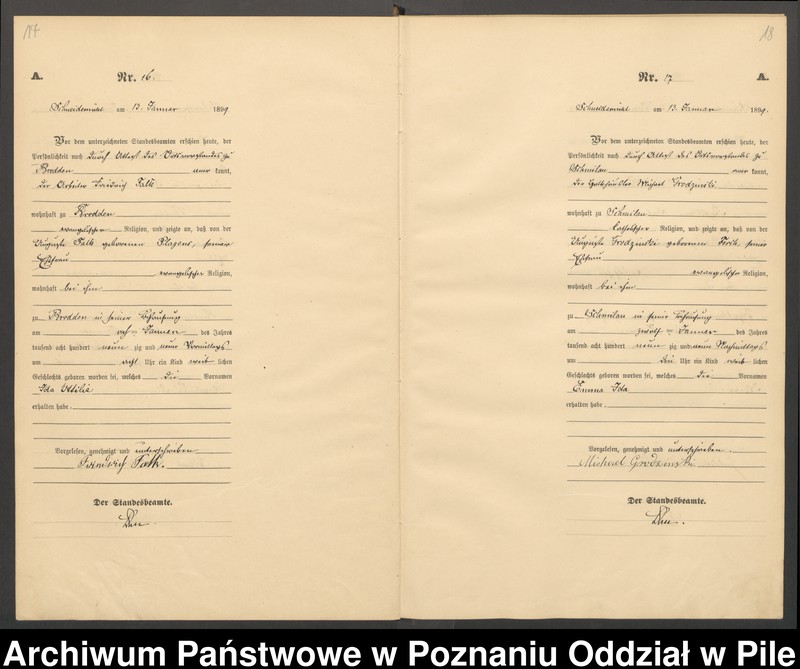 17
A.
Nr. 16.
Schneidemühl am 13. Januar 1899
Vor dem unterzeichneten Standesbeamten erschien heute, der
Persönlichkeit nach durch Attest des Ortsvorstandes zu
Brodden aner kannt,
der Arbeiter Friedrich Falk
wohnhaft zu Brodden
evangelischer Religion, und zeigte an, daß von der
Auguste Falk geborenen Plagens, seiner
Ehefrau
evangelischer Religion,
wohnhaft bei ihm
zu Brodden in seiner Behausung
am Januar des Jahres
tausend acht hundert neun zig und neun Vormittags
um acht Uhr ein Kind weib lichen
Geschlechts geboren worden sei, welches die Vornamen
Ida Ottilie
erhalten habe.
Vorgelesen, genehmigt und unterschrieben
Friedrich Falk.
Der Standesbeamte.
18
Nr. 17
A.
Schneidemühl am 13. Januar 1899.
Vor dem unterzeichneten Standesbeamten erschien heute, der
Persönlichkeit nach durch Attest des Ortsvorstandes zu
Schmilau aner kannt,
der Michael Grodzinski
wohnhaft zu Schmilau
katholischer Religion, und zeigte an, daß von der
Auguste Grodzinski geborenen seiner
Ehefrau
evangelischer Religion,
wohnhaft bei ihm
zu Schmilau in seiner Behausung
am zwölf ten Januar des Jahres
tausend acht hundert neun zig und neun Nachmittags
um drei Uhr ein Kind weib lichen
Geschlechts geboren worden sei, welches die Vornamen
Emma Ida
erhalten habe.
Vorgelesen, genehmigt und unterschrieben.
Michael Grodzinski
Der Standesbeamte.
Archiwum Państwowe w Poznaniu Oddział w Pile